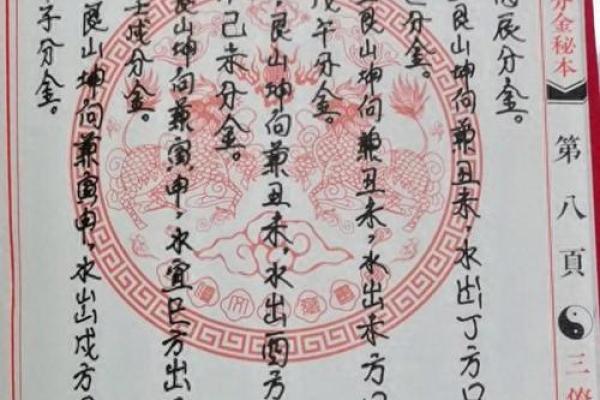 分金秘本
第八頁
三僚
辰分金。
艮山坤向兼丑未，水出丁方口
分金。
艮山坤向兼丑未，水出未方口
午分金。
艮山坤向兼丑未，水出丙方
己未分金。
山坤向兼寅申，水宜巳方出
戌分金。
艮山坤向兼寅申，水出戌方
子分金。